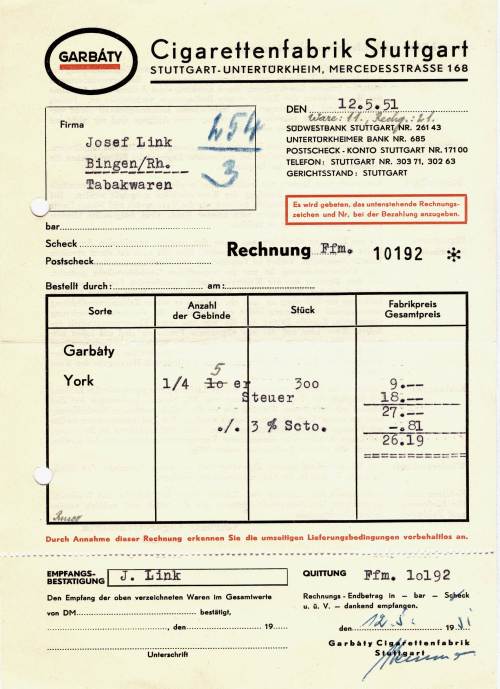 GARBÁTY
Cigarettenfabrik Stuttgart
STUTTGART-UNTERTÜRKHEIM, MERCEDESSTRASSE 168
DEN 12.5.51
Ware: 11., Rechg.: 21.
Firma
Josef Link
Bingen/Rh.
Tabakwaren
254
3
SÜDWESTBANK STUTTGART NR. 261 43
UNTERTÜRKHEIMER BANK NR. 685
POSTSCHECK - KONTO STUTTGART NR. 171 00
TELEFON: STUTTGART NR. 303 71, 302 63
GERICHTSSTAND: STUTTGART
Es wird gebeten, das untenstehende Rechnungs-
zeichen und Nr. bei der Bezahlung anzugeben.
bar
Scheck
Postscheck
Rechnung Ffm. 10192 *
Bestellt durch: am:
Sorte Anzahl der Gebinde Stück Fabrikpreis Gesamtpreis
Garbáty
5
York 1/4 1o er 3oo 9.--
Steuer 18.--
27.--
./. 3 % Scto. -.81
26.19
===========
Durch Annahme dieser Rechnung erkennen Sie die umseitigen Lieferungsbedingungen vorbehaltlos an.
EMPFANGS-
BESTÄTIGUNG J. Link
QUITTUNG Ffm. 1o192
Den Empfang der oben verzeichneten Waren im Gesamtwerte
von DM bestätigt,
, den 19
Unterschrift
Rechnungs - Endbetrag in – bar – Scheck
u. ü. V. – dankend empfangen.
den 12.5. 1951
Garbáty Cigarettenfabrik
Stuttgart